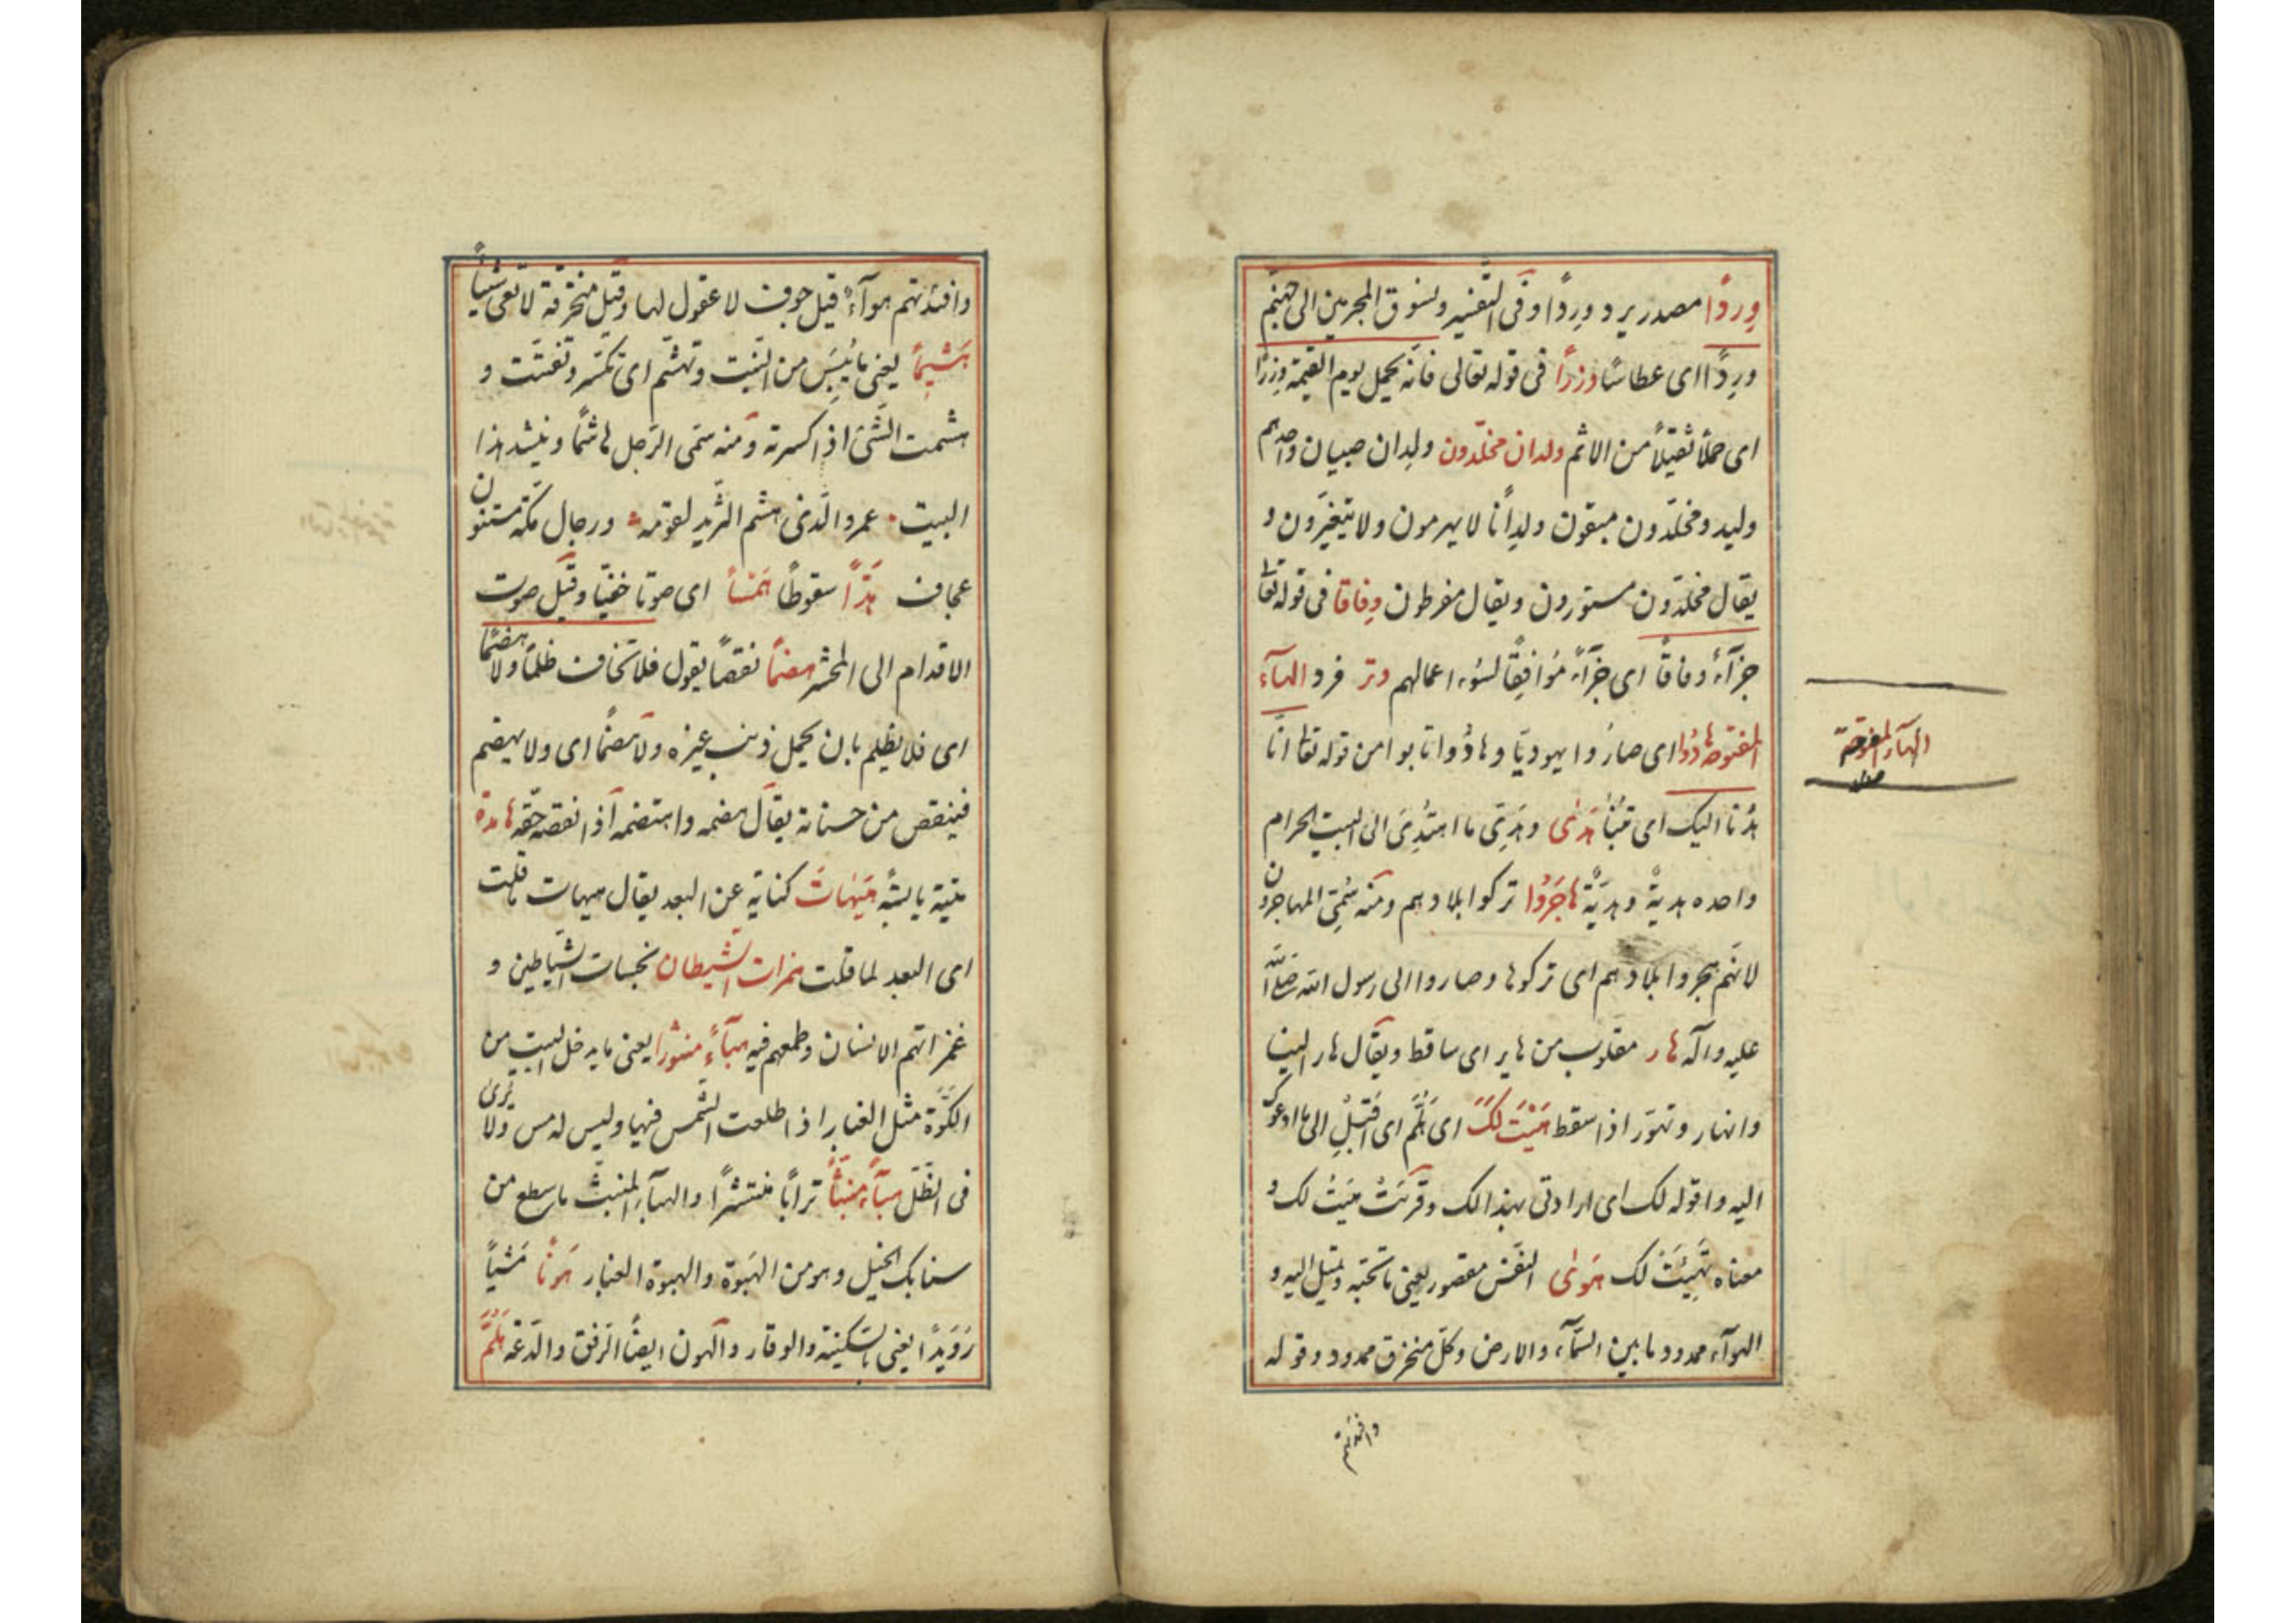 وِردًا مصدر يرد وِردًا وفى التفسير ونسوق المجرمين الى جهنم
وِردًا اى عطاشًا وزرًا فى قوله تعالى فانه يحمل يوم القيمة وزرًا
اى حملًا ثقيلًا من الاثم ولدان مخلّدون ولدان صبيان واحدهم
وليد ومخلّدون مبقون ولدانًا لا يهرمون ولا يتغيّرون و
يقال مخلّدون مستورون ويقال مفرطون وِفاقا فى قوله تعا
جزآءً وفاقًا اى جزآءً مُوافِقًا لسُوء اعمالهم وتر فرد الهآء
المفتوحه هادُوا اى صارُوا يهوديّا وهادُوا تابوا من قوله تعا انّا
هُدنا اليك اى تُبنا هَدىٰ وهَدىٰ ما اهتُدِىَ الى البيت الحرام
واحده هديةٌ وهديّةٌ هاجَرُوا تركوا بلادهم ومنه سُمّى المهاجرون
لانّهم هجروا بلادهم اى تركوها وصاروا الى رسول الله صلى الله
عليه وآله هار مقلوب من هاير اى ساقط ويقال هار البنا
وانهار وتهوّر اذا سقط هَيْتَ لَكَ اى هَلُمَّ اى اَقْبِلْ الى ما ادعوك
اليه واقوله لك اى ارادتى بهذا لك وقرئتْ هَيَتُ لك و
معناه تَهيّئتُ لك هَوىٰ النفس مقصور يعنى ما تحبّه وتميل اليه و
الهوآء ممدود ما بين السّمآء والارض وكلّ منخرق ممدود وقوله
وافئدتهم
الهآء المفتوحة
وافئدتهم هوآءٌ قيل جوف لا عقول لها وقيل منخرقة لا تعى شيئًا
هَشيمًا يعنى ما يَبِسَ من النّبت وتهشّم اى تكسّر وتفتّت و
هشمت الشّئ اذا كسرته ومنه سمّى الرّجل هاشمًا وينشد هذا
البيت عمرو الّذى هشم الثّريد لقومه ورجال مكّة مسنتون
عجاف هدًّا سقوطًا هَمْسًا اى صوتا خفيّا وقيل صوت
الاقدام الى المحشر هضمًا نقصًا يقول فلا تخاف ظلمًا ولا هضمًا
اى فلا يظلم بان يحمل ذنب غيره ولا هضمًا اى ولا يهضم
فينقص من حسناته يقال هضمه واهتضمه اذا نقصه حقّه هامدة
ميّتة يابسةٌ هَيهٰاتَ كناية عن البعد يقال هيهات ما قلت
اى البعد لما قلت همزات الشيطان نخسات الشّياطين و
غمزاتهم الانسان وطمعهم فيه هبآءً منثورًا يعنى ما يدخل البيت من
الكُوّة مثل الغبار اذا طلعت الشّمس فيها وليس له مس ولا يُرىٰ
فى الظّل هبآءً منبثًّا ترابًا منتشرًا والهبآء المنبثّ ما سطع من
سنابك الخيل وهو من الهَبوة والهبوة الغبار هَونًا مَشيًا
رُوَيدًا يعنى بالسّكينة والوقار والهون ايضًا الرّفق والدّعة هَلُمَّ